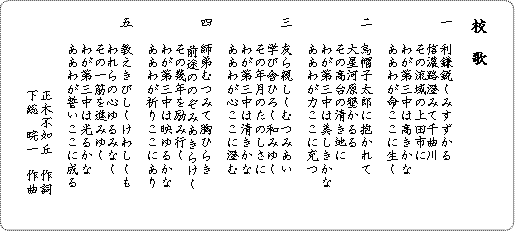 校歌
一
利鎌鋭くみすずかる
信濃路澄みて千曲川
その流域の上田市に
わが第三中は高きかな
ああわが命ここに生く
二
烏帽子太郎に抱かれて
大星河原懸かるる
その高台の清き地に
わが第三中は美しきかな
ああわが力ここに充つ
三
友ら親しくむつみあい
学び舎ひろく和みゆく
その年月のたのしさに
わが第三中は清きかな
ああわが心ここに澄む
四
師弟むつみて胸ひらき
前途ののぞみあきらけく
その幾年を励み行く
わが第三中は映ゆるかな
ああわが祈りここにあり
五
教えきびしくけわしくも
われらの心ゆるみなく
その一筋を進みゆく
わが第三中は光るかな
ああわが誓いここに成る
正木不如丘 作詞
下総 皖一 作曲